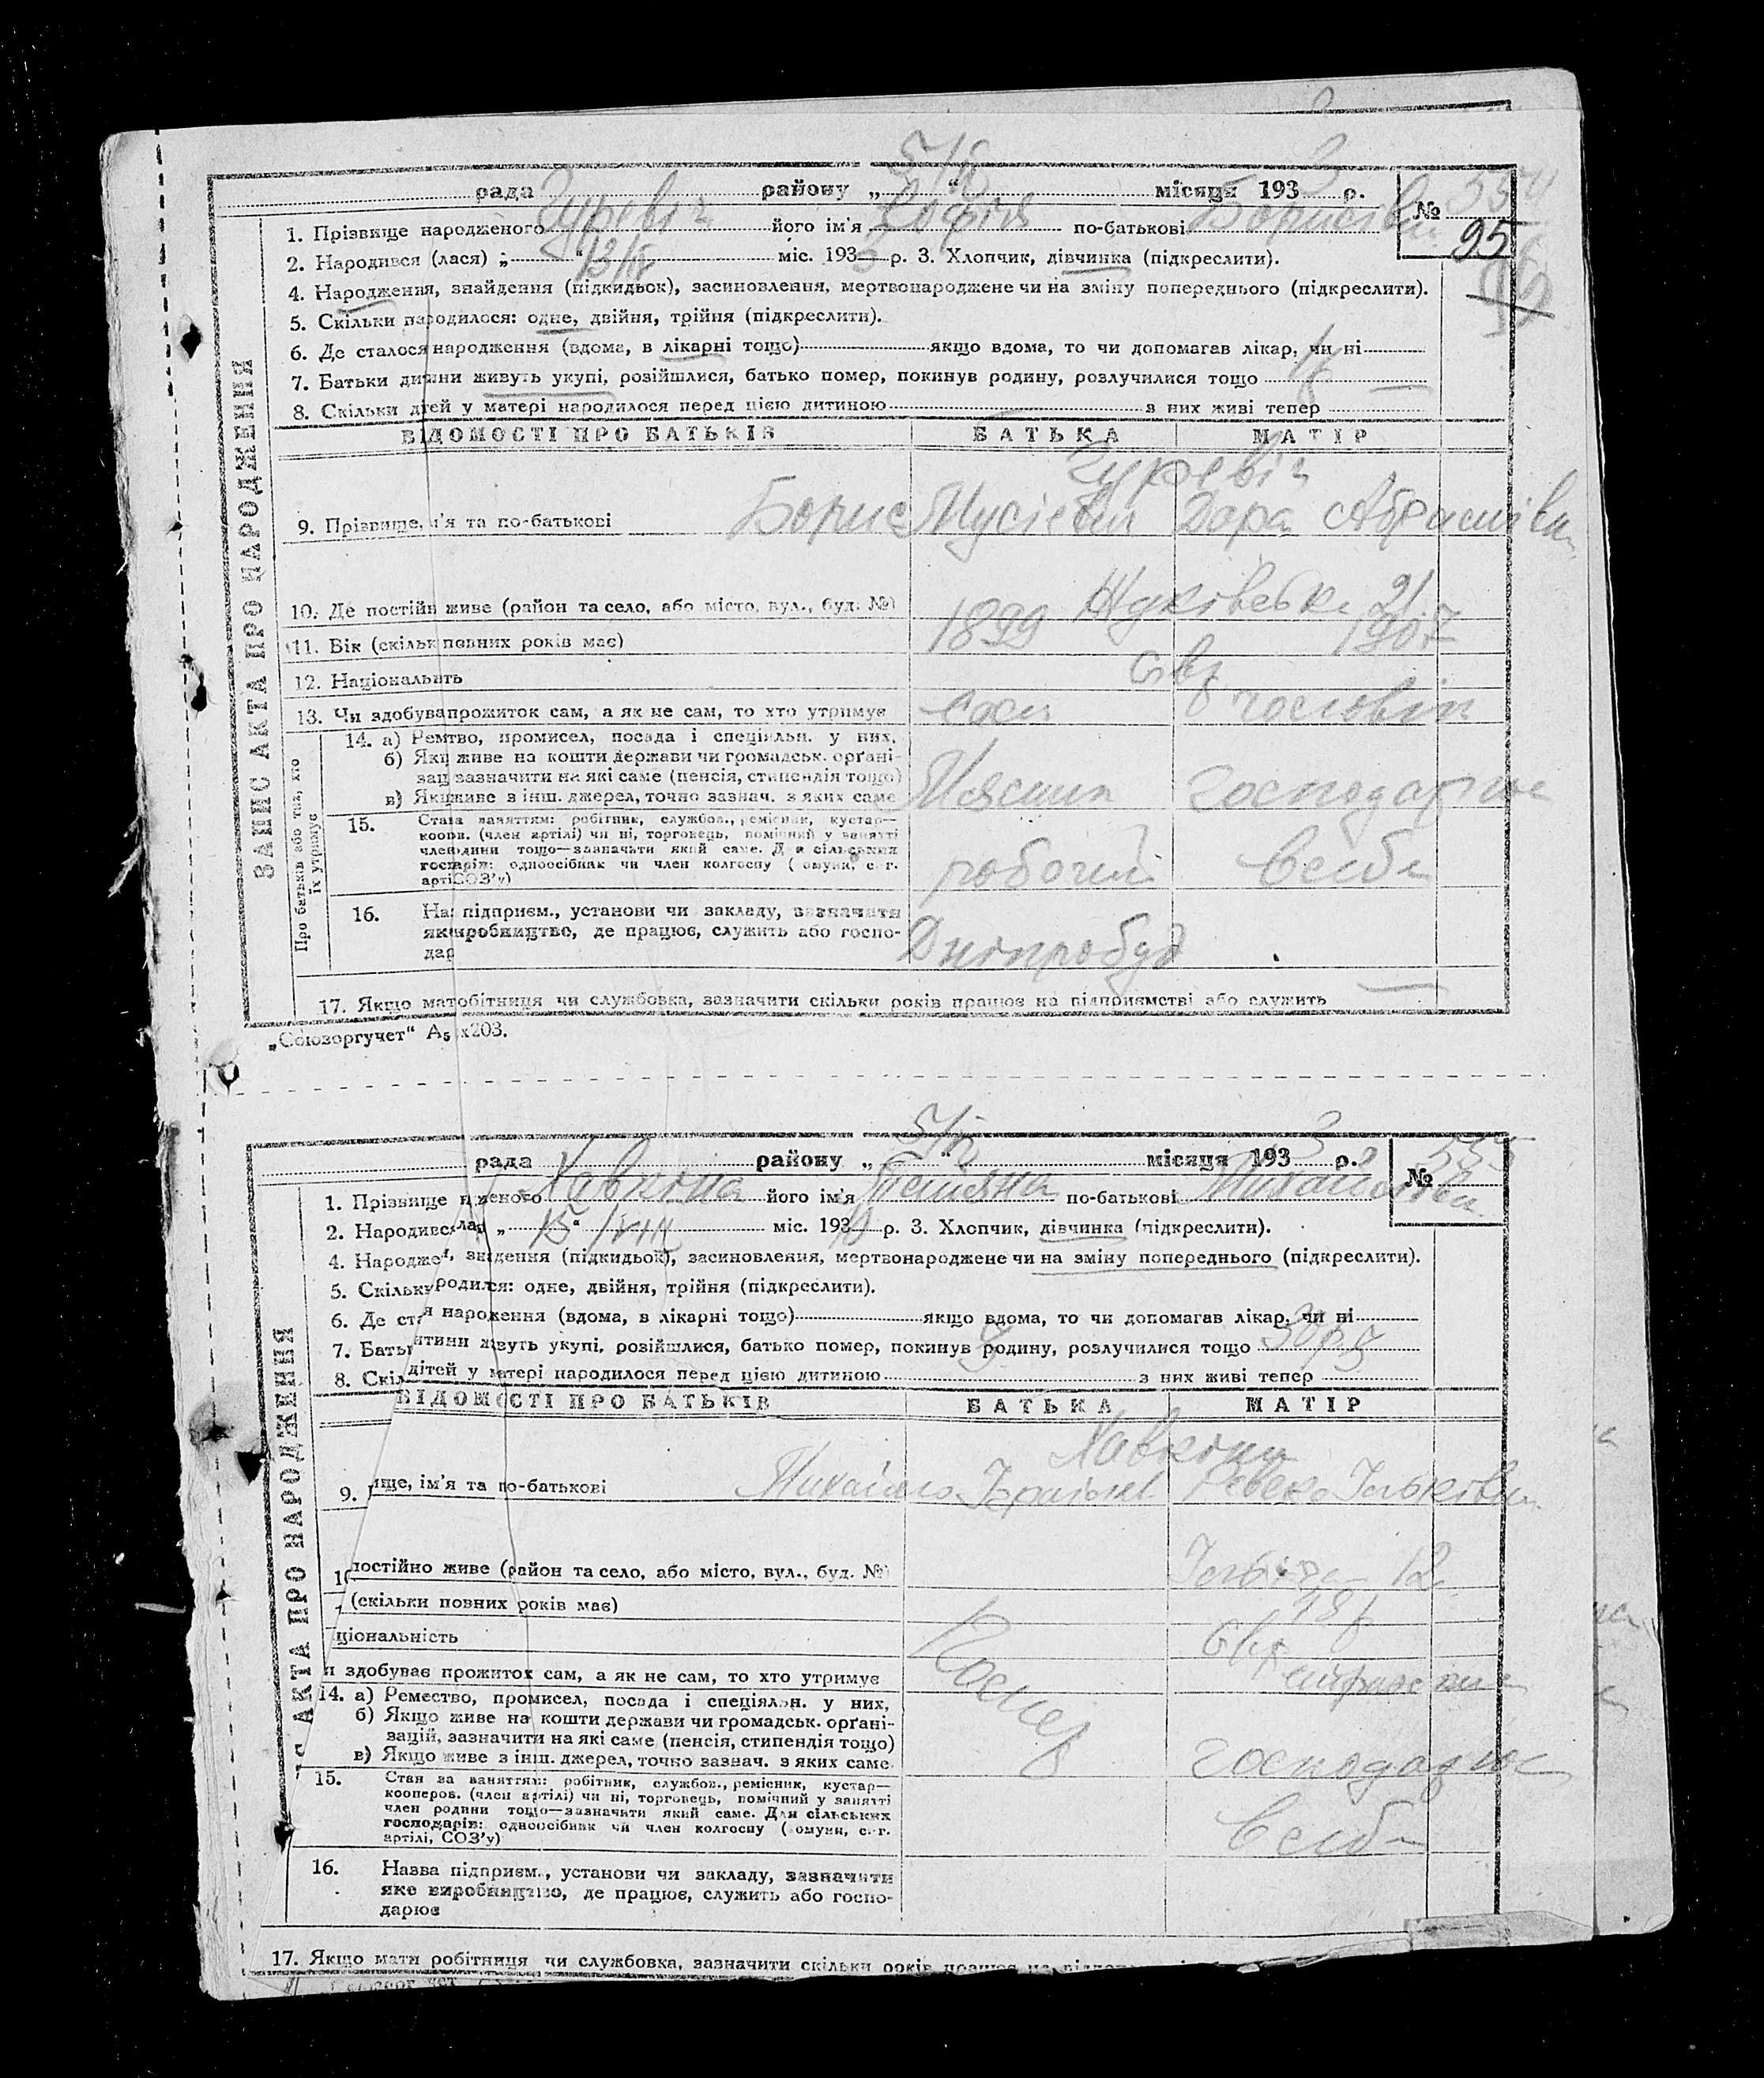 рада району „ 5/ “ місяця 193 3 р.
№ 554
95
1. Прізвище народженого Гуревіч його ім'я Софія по-батькові Борисівн
2. Народився (лася) „ 13/ “ міс. 193 3 р. 3. Хлопчик, дівчинка (підкреслити).
4. Народження, знайдення (підкидьок), засиновлення, мертвонароджене чи на зміну попереднього (підкреслити).
5. Скільки народилося: одне, двійня, трійня (підкреслити).
6. Де сталося народження (вдома, в лікарні тощо) якщо вдома, то чи допомагав лікар, чи ні
7. Батьки дитини живуть укупі, розійшлися, батько помер, покинув родину, розлучилися тощо
8. Скільки дітей у матері народилося перед цією дитиною — з них живі тепер
ЗАПИС АКТА ПРО НАРОДЖЕННЯ
ВІДОМОСТІ ПРО БАТЬКІВ БАТЬКА МАТІР
Гуревіч
9. Прізвище, м'я та по-батькові Борис Мусієвич Дора Абрамівн
10. Де постійн живе (район та село, або місто, вул., буд. №) Жуківська 21
11. Вік (скільк певних років має) 1899 1907
12. Національить євр
13. Чи здобува прожиток сам, а як не сам, то хто утримує сам чоловік
Про батьків або тих, хто їх утримує
14. а) Ремтво, промисел, посада і спеціяльн. у них,
б) Якщ живе на кошти держави чи громадськ. органі-
зац зазначити на які саме (пенсія, стипендія тощо)
в) Якщ живе з інш. джерел, точно зазнач. з яких саме
господарює
15. Става заняттям: робітник, службов., ремісник, кустар—
кооnв. (член артілі) чи ні, торговець, помічний у занятті
член одини тощо—зазначити який саме. Для сільських
госпарів: одноосібник чи член колгоспу ( омуни, с.-г.
арті СОЗ'у)
робочий
16. На підприєм., установи чи закладу, зазначити
яквиробництво, де працює, служить або госпо-
дар
Дніпробуд
17. Якщо матобітниця чи службовка, зазначити скільки років працює на підприємстві або служить —
„Союзоргучет“ А5 х203.
рада району „ 5/ “ місяця 193 3 р.
№ 555
1. Прізвище н женого Хавкіна його ім'я по-батькові Михайлівн
2. Народивс лася „ 15 “ /VIII міс. 193 р. 3. Хлопчик, дівчинка (підкреслити).
4. Народже , знадення (підкидьок), засиновлення, мертвонароджене чи на зміну попереднього (підкреслити).
5. Скільк родился: одне, двійня, трійня (підкреслити).
6. Де ста я народження (вдома, в лікарні тощо) якщо вдома, то чи допомагав лікар, чи ні
7. Батьк итини живуть укупі, розійшлися, батько помер, покинув родину, розлучилися тощо
8. Скіл дітей у матері народилося перед цією дитиною з них живі тепер
АКТА ПРО НАРОДЖЕННЯ
ВІДОМОСТІ ПРО БАТЬКІВ БАТЬКА МАТІР
Хавкіни
9. ище, ім'я та по-батькові Михайло Ревека
10 постійно живе (район та село, або місто, вул., буд. №) 12
(скільки повних років має)
ціональність євр
и здобуває прожиток сам, а як не сам, то хто утримує
Помер
14. а) Ремество, промисел, посада і спеціялэн. у них,
б) Якщо живе на кошти держави чи громадськ. органі-
зацій, зазначити на які саме (пенсія, стипендія тощо)
в) Якщо живе з інш. джерел, точно зазнач. з яких саме.
господарює
15. Стан за заняттям: робітник, службов., ремісник, кустар—
кооперов. (член артілі) чи ні, торговець, помічний у занятті
член родини тощо—зазначити який саме. Для сільських
господарів: одноосібник чи член колгоспу ( омуни, с.-г.
артілі, СОЗ'у)
16. Назва підприєм., установи чи закладу, зазначити
яке виробництво, де працює, служить або госпо-
дарює
17. Якщо мати робітниця чи службовка, зазначити скільки років працює на